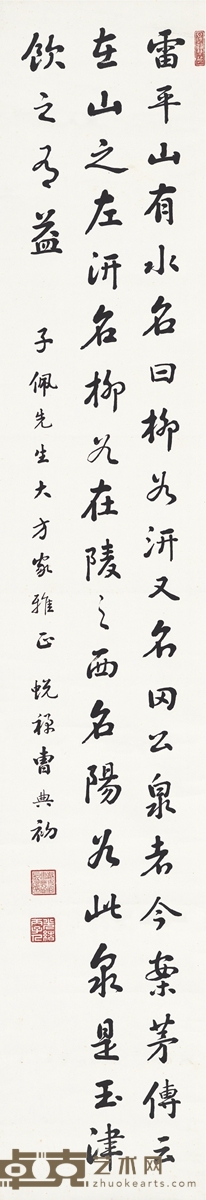 雷平山有水名曰柳谷汧又名田公泉者今案茅傳云
在山之左汧名柳谷在陵之西名陽谷此泉是玉津
飲之有益
子佩先生大方家雅正 蜕禅曹典初
卓克艺术网
zhuokearts.com